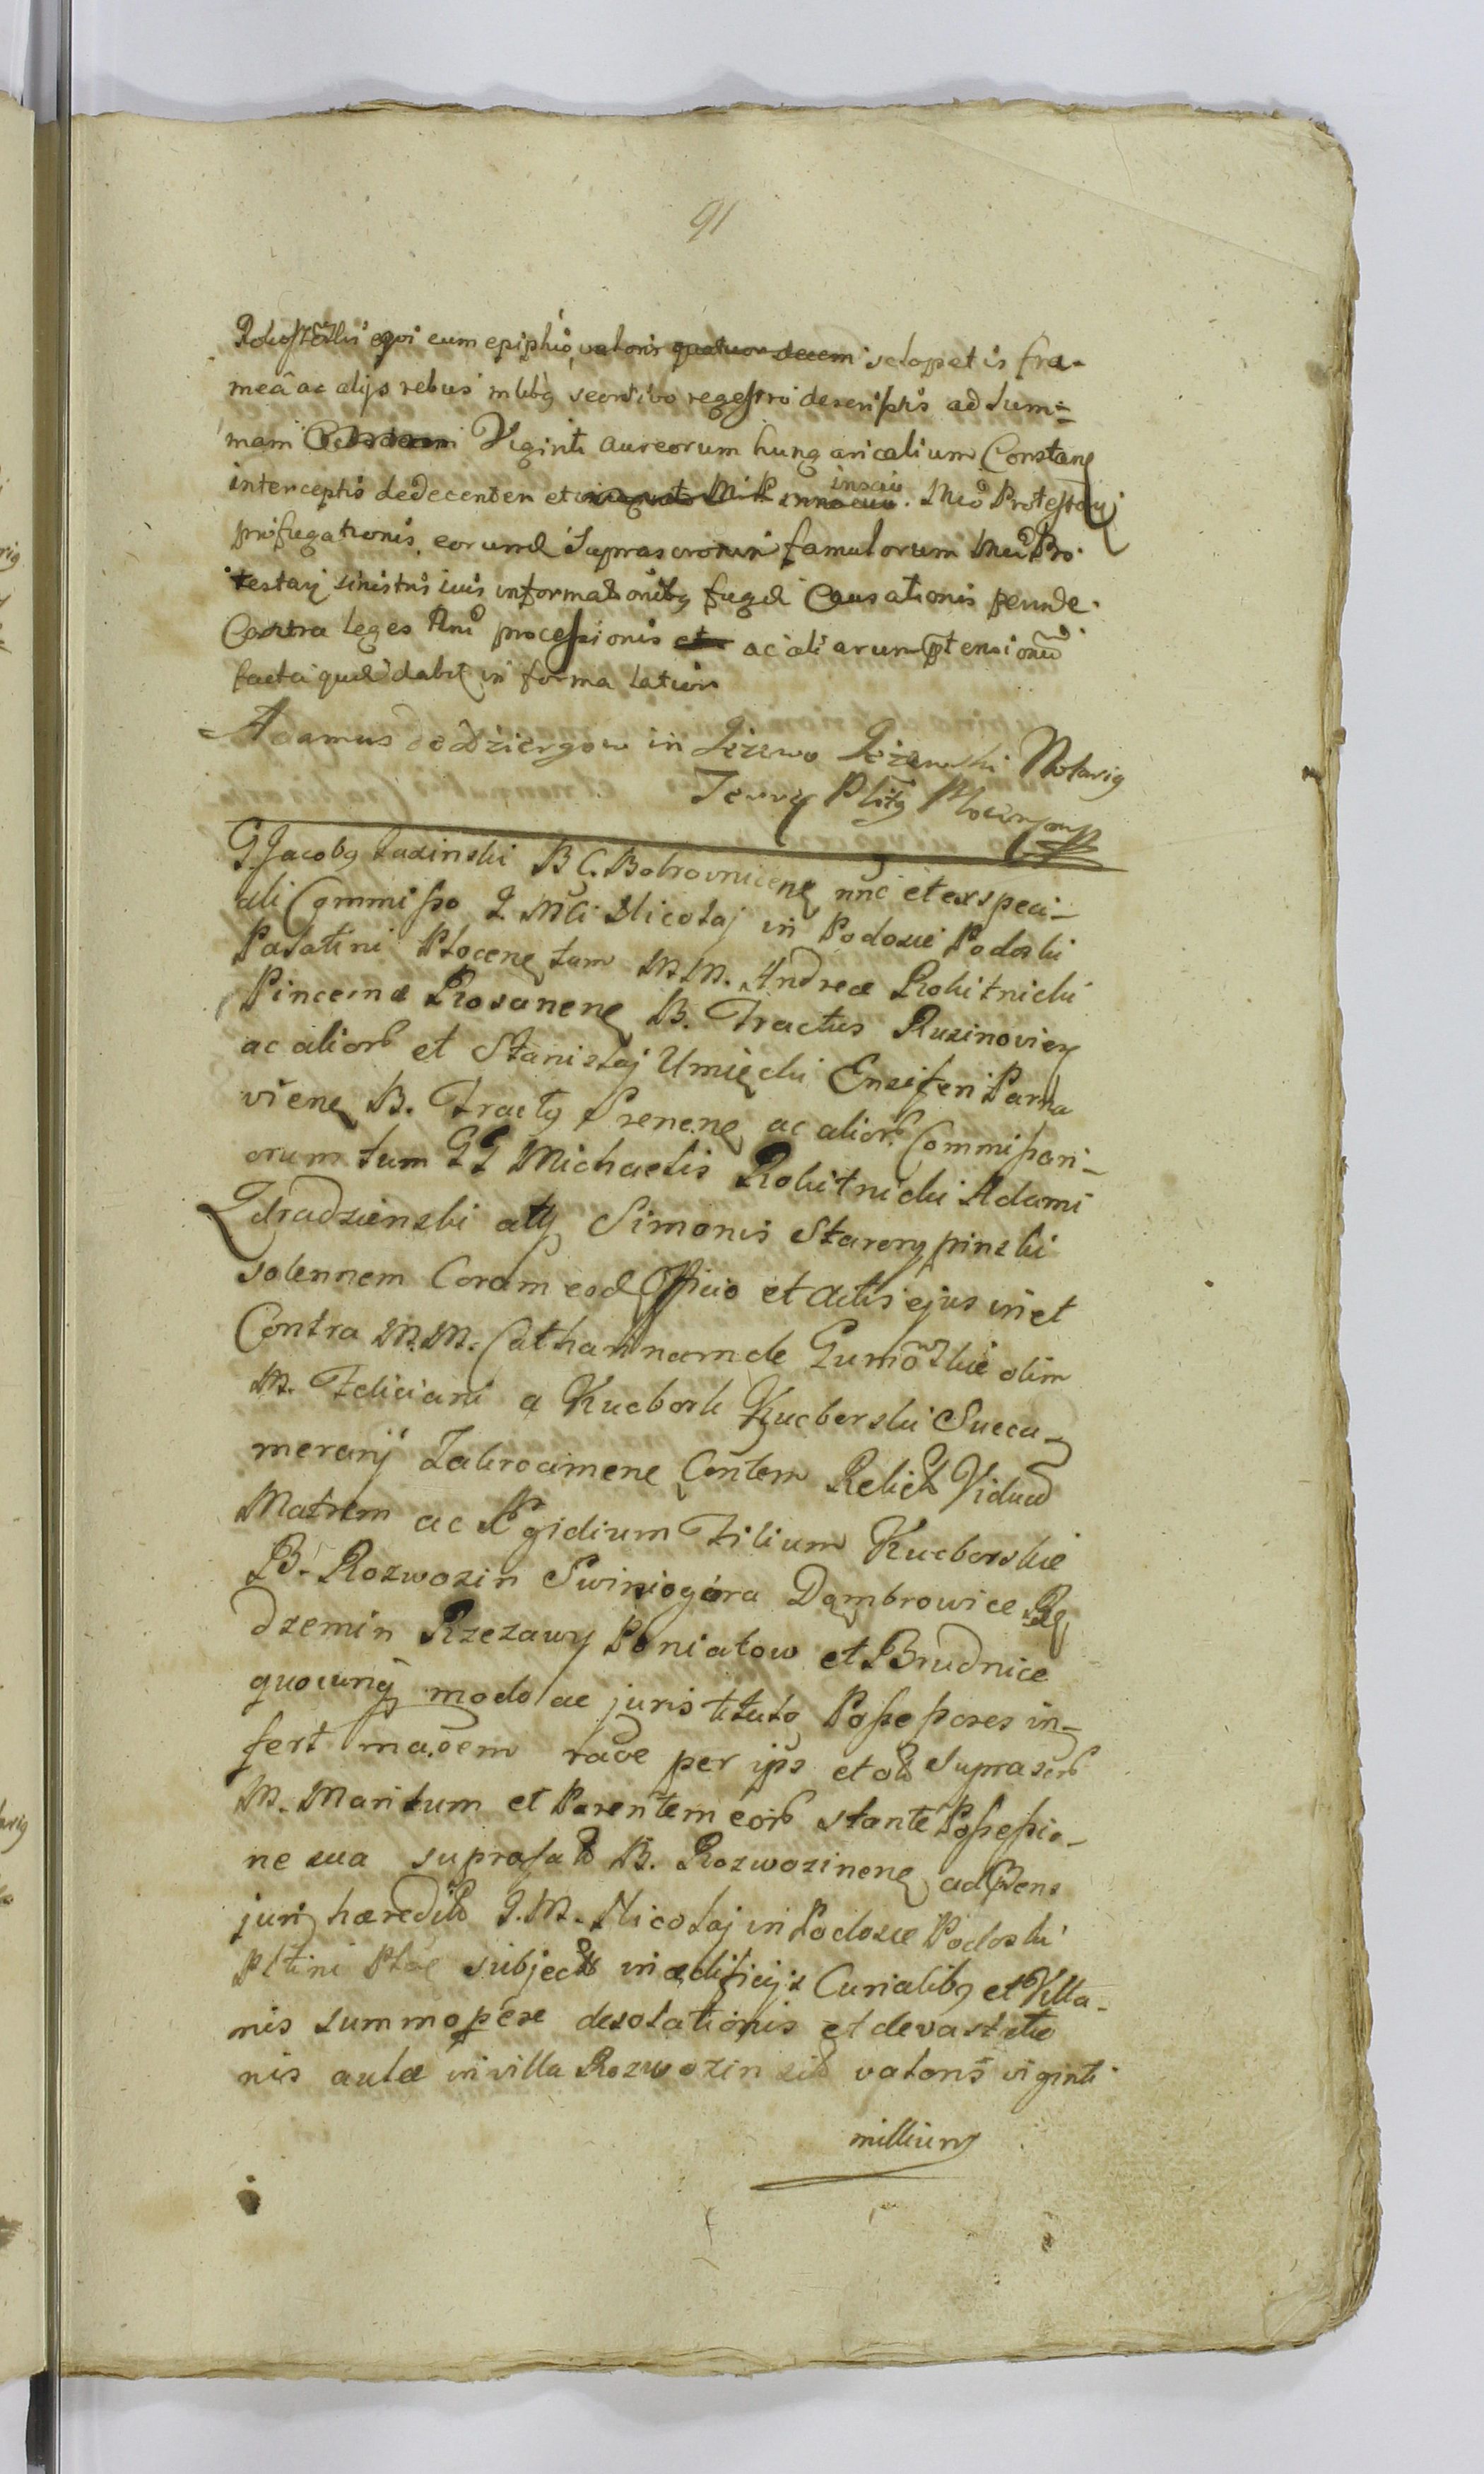 91
equi cum epiphio valoris quatuor decem sclopetis fra-
meâ ac alijs rebus mltbq seorsivo regestro descriptis ad sum=
mam Viginti aureorum hungaricalium Constanę
interceptis dedecenter et inscio Mcō Protestań
profugationis eorund suprascrorum famulorum Mci Pro
testań sinistris suis informationibq fugæ Causationis perinde
Contra leges processionis et ac aliarum ptensionū
facti qua dabit in forma latiori
Adamus de Dziergow in Liżewo Liżewski Notariq
Terrę Plttq Plocen mp
G Jacobq Luzinski B C. Bobrovnicenę nnc et ex speci-
ali Commisso I. Mci Nicolaj in Podosie Podoski
Palatini Plocenę tum M. M. Andreæ Rokitnicki
Pincernæ Rosanenę B. Tractus Ruzinoviey
ac aliorb et Stanislaj Umięcki Ensiferi Parna
vienę B. Tractq Srenenę ac aliorb Commissari-
orum tum GG Michaelis Rokitnicki Adami
Zdradzienski atq Simonis Starorypinski
solennem Coram eod Officio et actis ejus in et
Contra M. M. Catharinam de Gumowskie olim
M. Feliciani a Kucbork Kucborski Succa-
merarij Zakrocimene Contem Relict Viduā
Matrem ac Ægidium Filium Kucborskie
B. Rozwozin Swiniogóra Dąmbrowice Rę
dzemin Rzezawy Poniatow et Brudnice
quocunq modo ac juris titulo Possessores in-
fert maōem raōe per ips et olī suprascrb
M. Maritum et Parentem eorb stante Possessio-
ne sua suprafatō B. Rozwozinenę ad Bona
juri hæreditō I. M. Nicolaj in Podosie Podoski
Pltini Ploc subjectō in ædificijs Curialibq et Villa-
nis summopere desolationis et devastatio
nis aulæ in villa Rozwozin sitō valoris viginti
millium